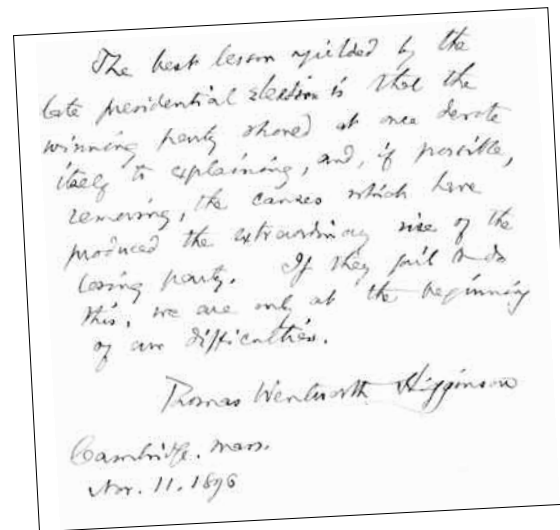 The best lesson yielded by the
late presidential election is that the
winning party should at once devote
itself to explaining, and, if possible,
removing, the causes which have
produced the extraordinary rise of the
losing party. If they fail to do
this, we are only at the beginning
of our difficulties.
Thomas Wentworth Higginson
Cambridge, Mass.
Nov. 11. 1896